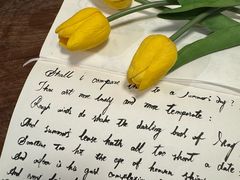 Shall I compare thee to a summer's day?
Thou art more lovely and more temperate:
Rough winds do shake the darling buds of May
And summer's lease hath all too short a date
Sometime too hot the eye of heaven shines
And often is his gold complexion
And every